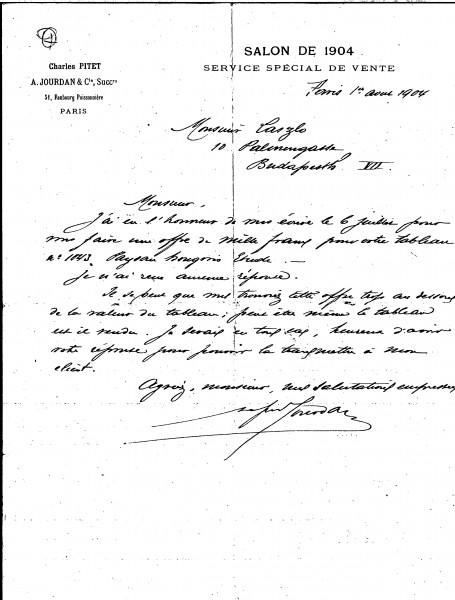 Charles PITET
A. JOURDAN & Cie, Succrs
51, Faubourg Poissonnière
PARIS
SALON DE 1904
SERVICE SPÉCIAL DE VENTE
Paris 1er aout 1904
Monsieur Laszlo
10
Budapesth VII
Monsieur,
J'ai eu l'honneur de vous écrire le 6 juillet pour
vous faire une offre de mille francs pour votre tableau
n° 1043. Paysan hongrois Etude. —
Je n'ai reçu aucune réponse.
Il se peut que vous trouviez cette offre trop au dessous
de la valeur du tableau; peut être même le tableau
est il vendu. Je serais en tous cas, heureux d'avoir
votre réponse pour pouvoir la transmettre à mon
client.
Agréez, monsieur, mes salutations empressées
Jourdan